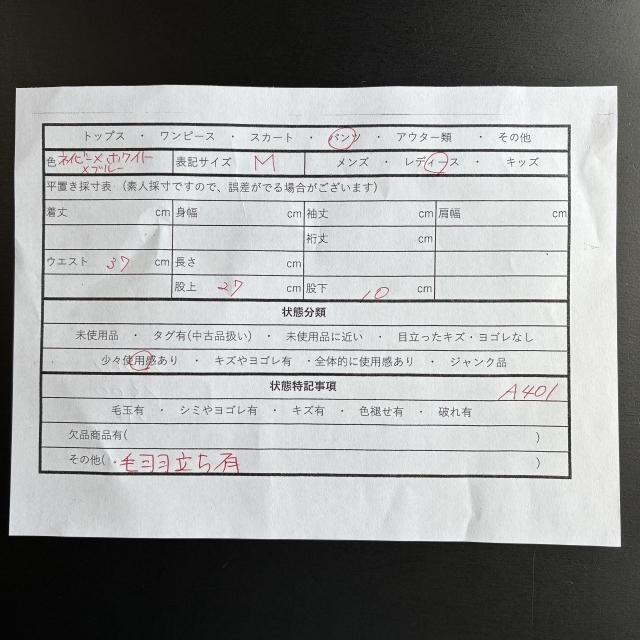 トップス ・ ワンピース ・ スカート ・ パンツ ・ アウター類 ・ その他
色 ネイビー×ホワイト×ブルー 表記サイズ M メンズ ・ レディース ・ キッズ
平置き採寸表 (素人採寸ですので、誤差がでる場合がございます)
着丈 cm 身幅 cm 袖丈 cm 肩幅 cm
裄丈 cm
ウエスト 37 cm 長さ cm
股上 27 cm 股下 10 cm
状態分類
未使用品 ・ タグ有(中古品扱い) ・ 未使用品に近い ・ 目立ったキズ・ヨゴレなし
少々使用感あり ・ キズやヨゴレ有 ・全体的に使用感あり ・ ジャンク品
状態特記事項 A401
毛玉有 ・ シミやヨゴレ有 ・ キズ有 ・ 色褪せ有 ・ 破れ有
欠品商品有( )
その他( ・毛羽立ち有 )